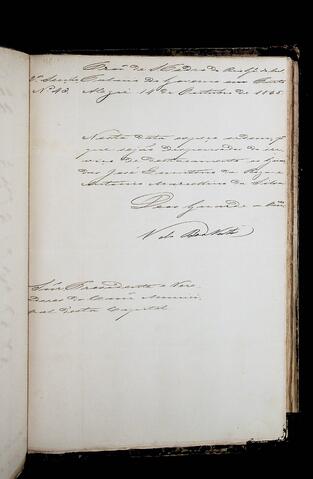 Prov.ª de S. Pedro do Rio Gr.de do Sul
2.ª Secção Palacio do Governo em Porto
N.º 43. Alegre 14 de Outubro de 1865.
Nesta data expeço ordem p.ª
que sejão dispensados do ser
viço de destacamento os Guar
das José
Antonio Marcellino da Silva
Deos Guarde a
Snr. Presidente e Vere
dores da Camr.ª Munici
pal desta Capital